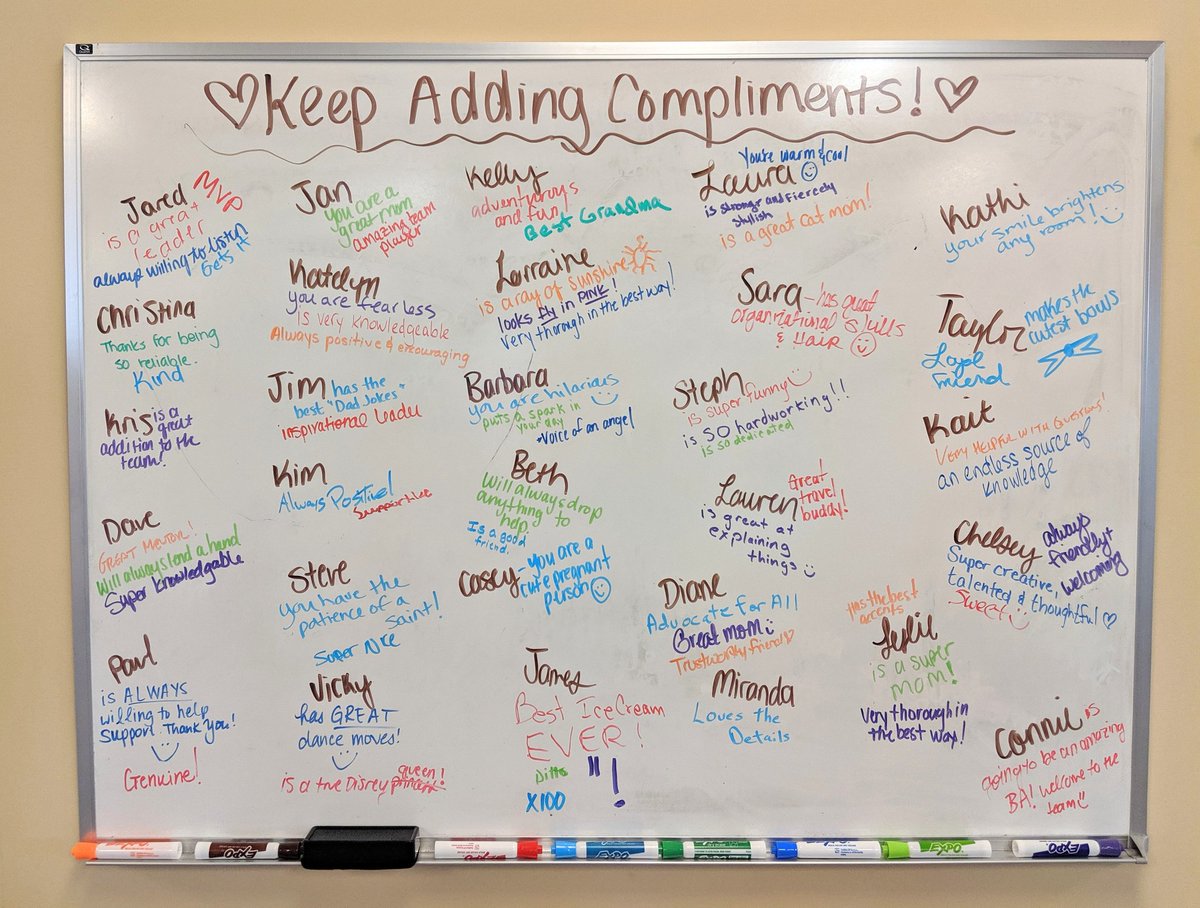 ♡Keep Adding Compliments!♡
Jared MVP
is a great
leader
always willing to listen
Gets it
Christina
Thanks for being
so reliable.
Kind
Kris is a
great
addition to the
team!
Dave
GREAT MENTOR!
Will always lend a hand
Super knowledgable
Paul
is ALWAYS
willing to help
Support. Thank You!
Genuine!
Jan
you are a
great mom
amazing team
player
Katelyn
you are fearless
Is very knowledgeable
Always positive & encouraging
Jim has the
best "Dad Jokes"
inspirational leader
Kim
Always Positive!
Supportive
Steve
you have the
patience of a
Saint!
Super Nice
Vicky
has GREAT
dance moves!
is a true Disney princess queen!
Kelly
adventurous
and fun
Best Grandma
Lorraine
is a ray of Sunshine
looks fly in PINK!
Very thorough in the best way!
Barbara
you are hilarious
puts a spark in
your day
+Voice of an angel
Beth
Will always drop
anything to
help.
Is a good
friend.
Casey-you are a
cute pregnant
person
James
Best Ice Cream
EVER!
Ditto "!
X100
You're warm & cool
Laura
is stronger and fiercely
stylish
is a great cat mom!
Sara-has great
organizational skills
& HAIR
Steph
is super funny
is SO hardworking!!
is so dedicated
Lauren Great
travel
buddy!
is great at
explaining
things
Diane
Advocate for All
Great mom
Trustworthy friend♡
Miranda
Loves the
Details
Has the best
accents
Leslie
is a super
mom!
Very thorough in
the best way!
Kathi
your smile brightens
any room!
Taylor makes the
cutest bows
Loyal
Friend
Kait
VERY HELPFUL WITH QUESTIONS!
an endless source of
knowledge
Chelsey always
friendly +
welcoming
Super creative,
talented & thoughtful ♡
Sweet
Connie is
going to be an amazing
BA! Welcome to the
team
EXPO
EXPO
EXPO
EXPO
EXPO